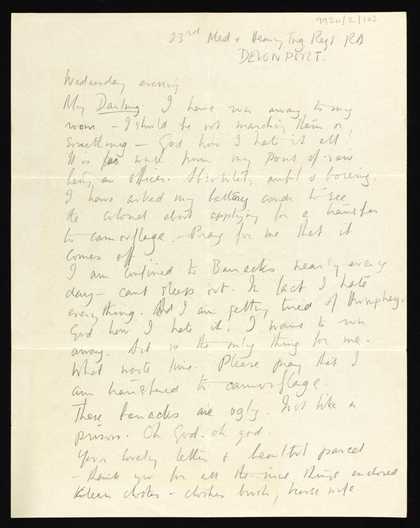 9920/2/102
23rd Med & Heavy Trg Regt RA
DEVONPORT.
Wednesday evening
My Darling I have run away to my
room – I should be out marching them or
something – God how I hate it all!
It is far worse from my point of view
being an officer. Absolutely awful & boring.
I have asked my battery comdr to see
the colonel about applying for a transfer
to camouflage – Pray for me that it
comes off.
I am confined to Barracks nearly every
day – cant sleep out. In fact I hate
everything. And I am getting tired of Humphrey.
God how I hate it. I want to run
away. Art is the only thing for me.
What waste time. Please pray that I
am transfered to camouflage.
These barracks are ugly. Just like a
prison. Oh God. oh god.
Your lovely letter & beautiful parcel
– thank you for all the nice things enclosed
clothes – clothes brush, house wife